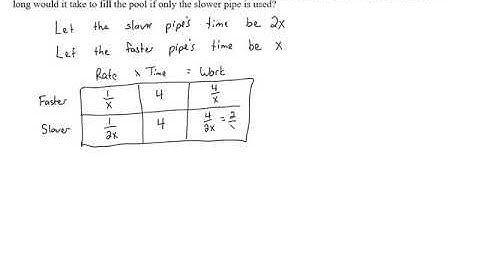 long would it take to fill the pool if only the slower pipe is used?
Let the slower pipe's time be 2x
Let the faster pipe's time be x
Rate x Time = Work
Faster 1/x 4 4/x
Slower 1/2x 4 4/2x = 2/x